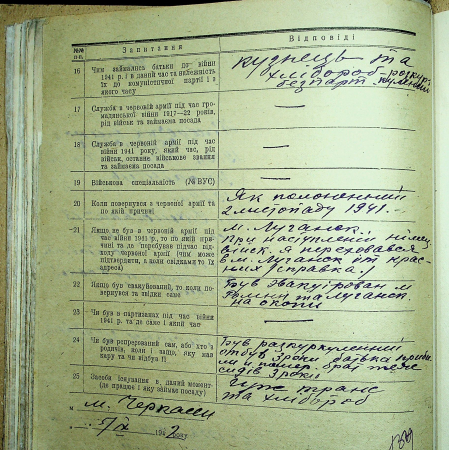 №№ п-п.
Запитання
Відповіді
16
Чим займались батьки до війни
1941 р. і в даний час та належність
їх до комуністичної партії і з
якого часу
кузнець та
хлібороб
безпарт.
17
Служба в червоній армії під час гро-
мадянської війни 1917—22 років,
рід військ та займаєма посада
—
18
Служба в червоній армії під час
війни 1941 року, який час, рід
військ, останнє військове звання
та займаєма посада
—
19
Військова спеціальність (№ ВУС)
—
20
Коли повернувся з червоної армії та
по якій причині
Як полонений
2 листопаду 1941.
21
Якщо був в червоній армії під
час війни 1941 р., то по якій при-
чині та де перебував підчас від-
ходу червоної армії (чим може
підтвердити, а коли свідками то їх
адреса)
м. Луганск.
При наступлении німец
війск. я переховався
в м. Луганск
справка
22
Якщо був евакуйований, то коли по-
вернувся та звідки саме
Був эвакуірован м
та Луганск.
на окопи
23
Чи був в партизанах під час війни
1941 р. та де саме і який час
—
24
Чи був репресирований сам, або хто з
родичів, коли і защо, яку мав
кару та чи відбув її
Був разкуркулений
отбув 3 роки батька
брат теж
сидів 3 роки
25
Засоби існування в даний момент
(де працює і яку займає посаду)
та хлібороб
м. Черкаси
5/IX 1942 року